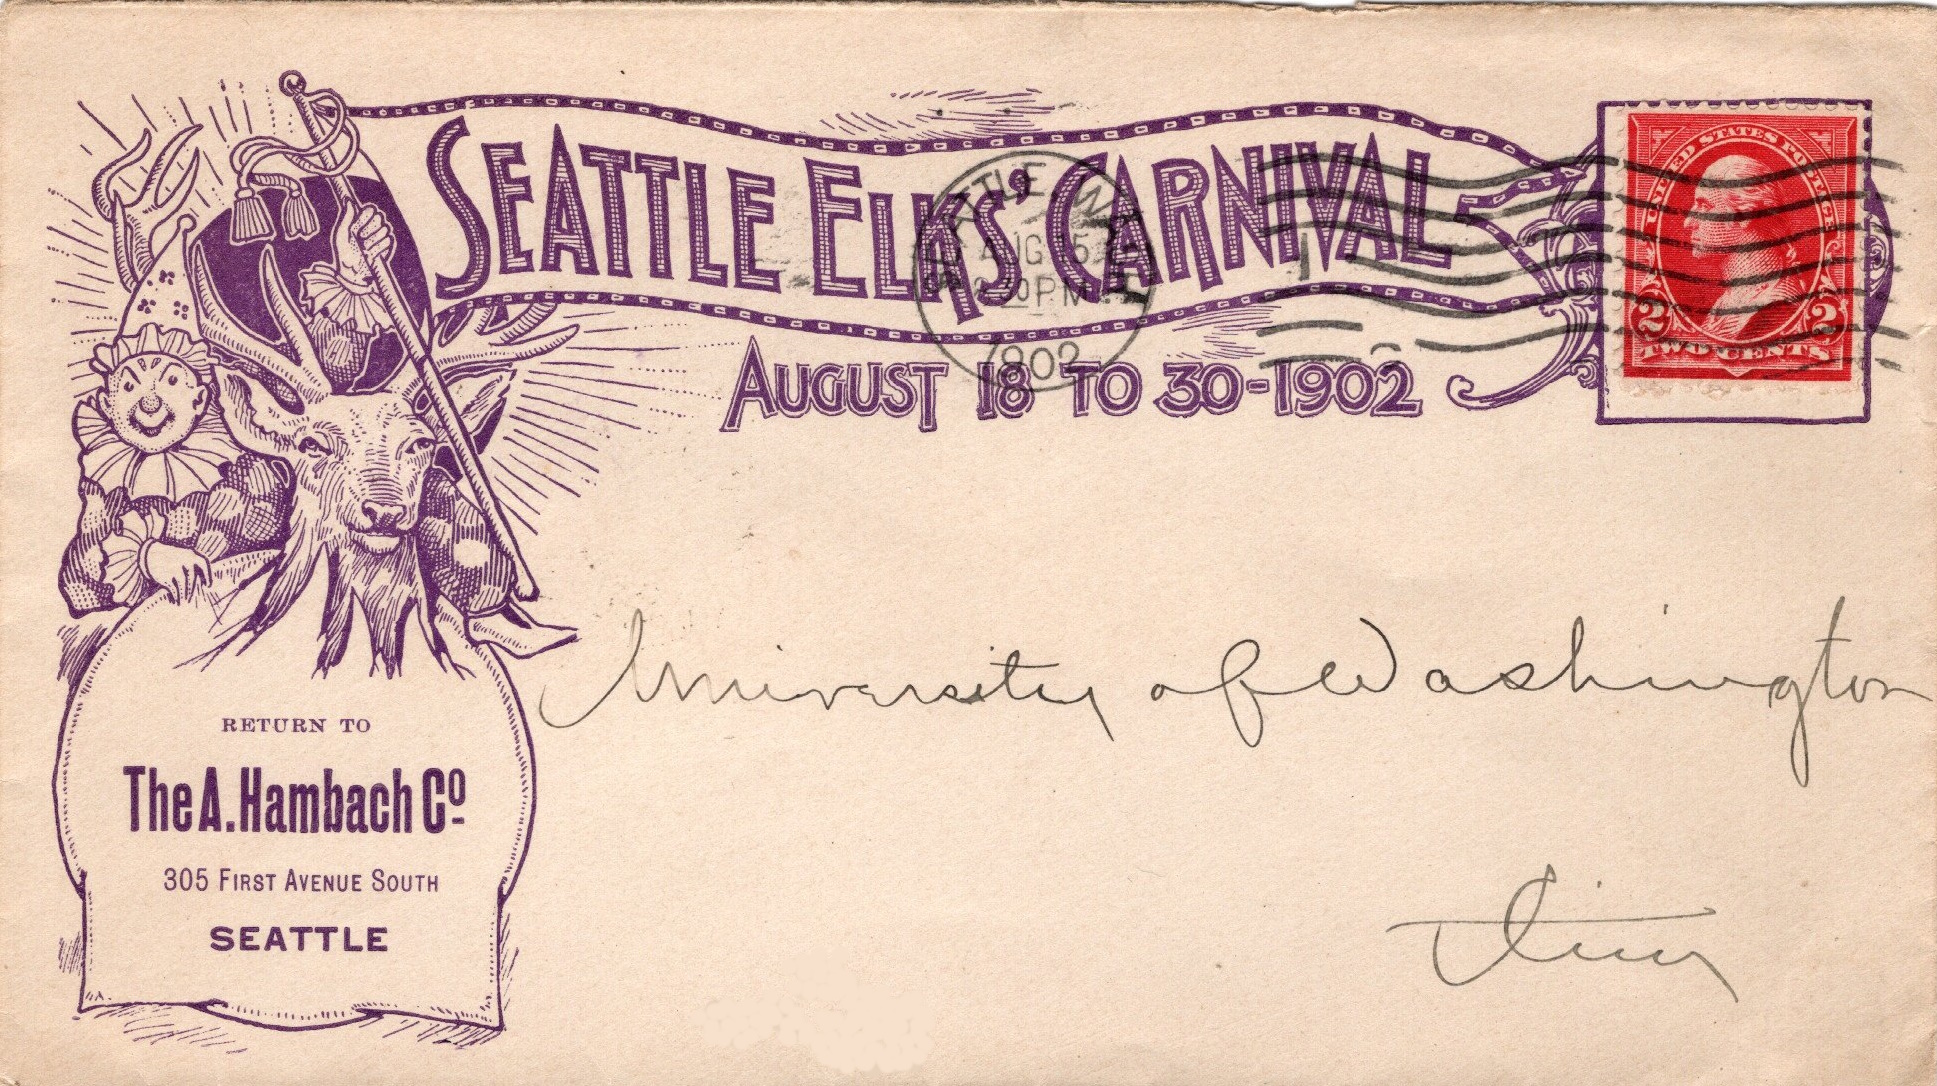 SEATTLE ELKS' CARNIVAL
AUGUST 18 TO 30-1902
SEATTLE, WASH.
AUG 15
30 PM
1902
UNITED STATES POSTAGE
2 2
TWO CENTS
University of Washington
RETURN TO
The A. Hambach Co
305 FIRST AVENUE SOUTH
SEATTLE